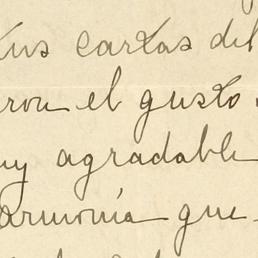 tus cartas del
ron el gusto
uy agradable
armonía que